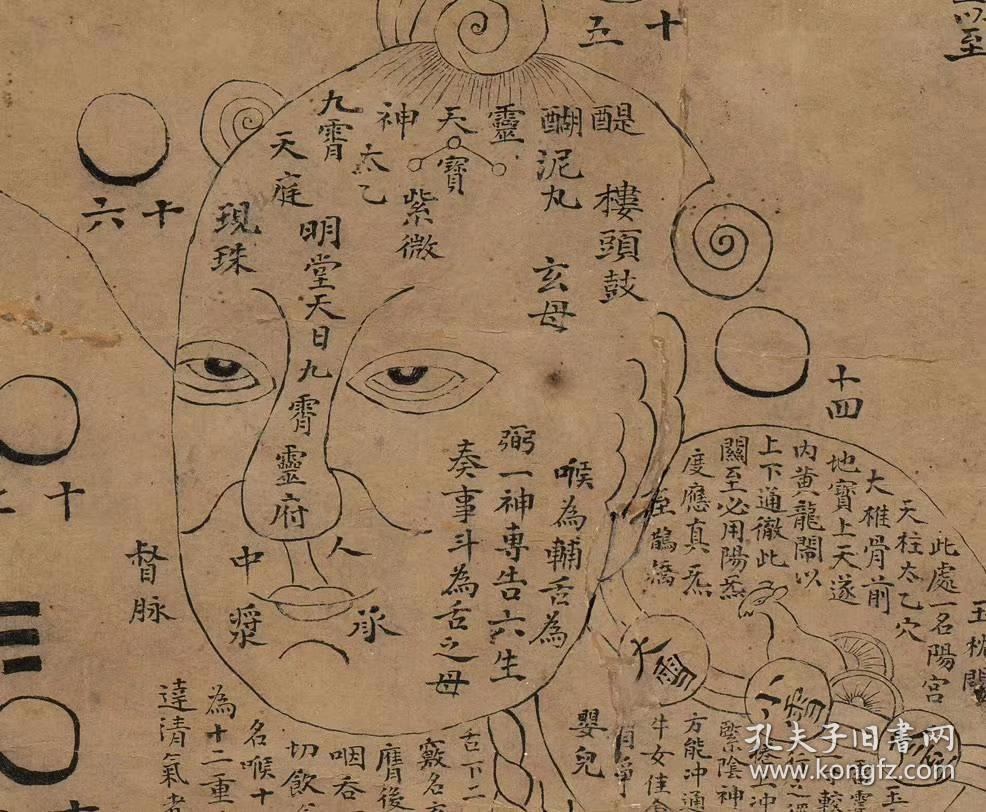 十五
以至
十六
十四
醍
醐
靈
天
神
九霄
泥丸
寶
太乙
天庭
樓頭鼓
玄母
紫微
明堂天日九霄靈府
現珠
喉為輔舌為
弼一神專告六生
奏事斗為舌之母
人中
承漿
督脉
十
此處一名陽宮
天柱太乙穴
大椎骨前
地寶上天遂
內黃龍鬧以
上下通徹此
關至必用陽炁
度應真炁
至鵲橋
玉枕關
大雪
小雪
嬰兒
牛女佳
方能沖通
繫陰神
舌下二
竅名
膺後
咽吞
切飲
名喉十
為十二重
達清氣者
孔夫子旧书网
www.kongfz.com